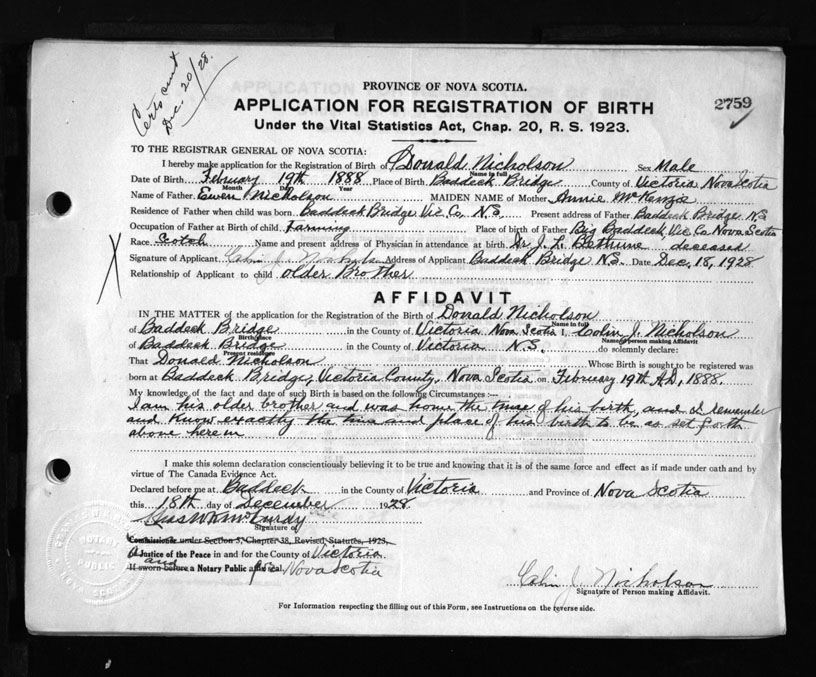 Certs sent
Dec. 20/28.
PROVINCE OF NOVA SCOTIA.
APPLICATION FOR REGISTRATION OF BIRTH
2759
Under the Vital Statistics Act, Chap. 20, R. S. 1923.
TO THE REGISTRAR GENERAL OF NOVA SCOTIA:
I hereby make application for the Registration of Birth of Donald Nicholson Sex Male
Name in full
Date of Birth February 19th 1888 Place of Birth Baddeck Bridge County of Victoria Nova Scotia
Month Day Year
Name of Father Ewen Nicholson MAIDEN NAME of Mother Annie McKenzie
Residence of Father when child was born Baddeck Bridge Vic Co, N.S. Present address of Father Baddeck Bridge NS
Occupation of Father at Birth of child Farming Place of birth of Father Big Baddeck, Vic Co Nova Scotia
Race Scotch Name and present address of Physician in attendance at birth Dr J. L. Bethune deceased
Signature of Applicant Colin J. Nicholson Address of Applicant Baddeck Bridge NS. Date Dec, 18, 1928
Relationship of Applicant to child older Brother
AFFIDAVIT
IN THE MATTER of the application for the Registration of the Birth of Donald Nicholson
Name in full
of Baddeck Bridge in the County of Victoria Nova Scotia I, Colin J. Nicholson
Birthplace Name of person making Affidavit
of Baddeck Bridge in the County of Victoria N.S. do solemnly declare:
Present residence
That Donald Nicholson Whose Birth is sought to be registered was
born at Baddeck Bridge, Victoria County, Nova Scotia on February 19th AD, 1888.
My knowledge of the fact and date of such Birth is based on the following Circumstances :—
I am his older brother and was home the time of his birth, and I remember
and know exactly the time and place of his birth to be as set forth
above herein
I make this solemn declaration conscientiously believing it to be true and knowing that it is of the same force and effect as if made under oath and by
virtue of The Canada Evidence Act.
Declared before me at Baddeck in the County of Victoria and Province of Nova Scotia
this 18th day of December 1928.
McCurdy
Signature of
Commissioner under Section 5, Chapter 38, Revised Statutes, 1923,
A Justice of the Peace in and for the County of Victoria
If sworn before a Notary Public affix seal,
and for Nova Scotia
Colin J. Nicholson
Signature of Person making Affidavit.
For Information respecting the filling out of this Form, see Instructions on the reverse side.
NOTARY
PUBLIC
NOVA SCOTIA